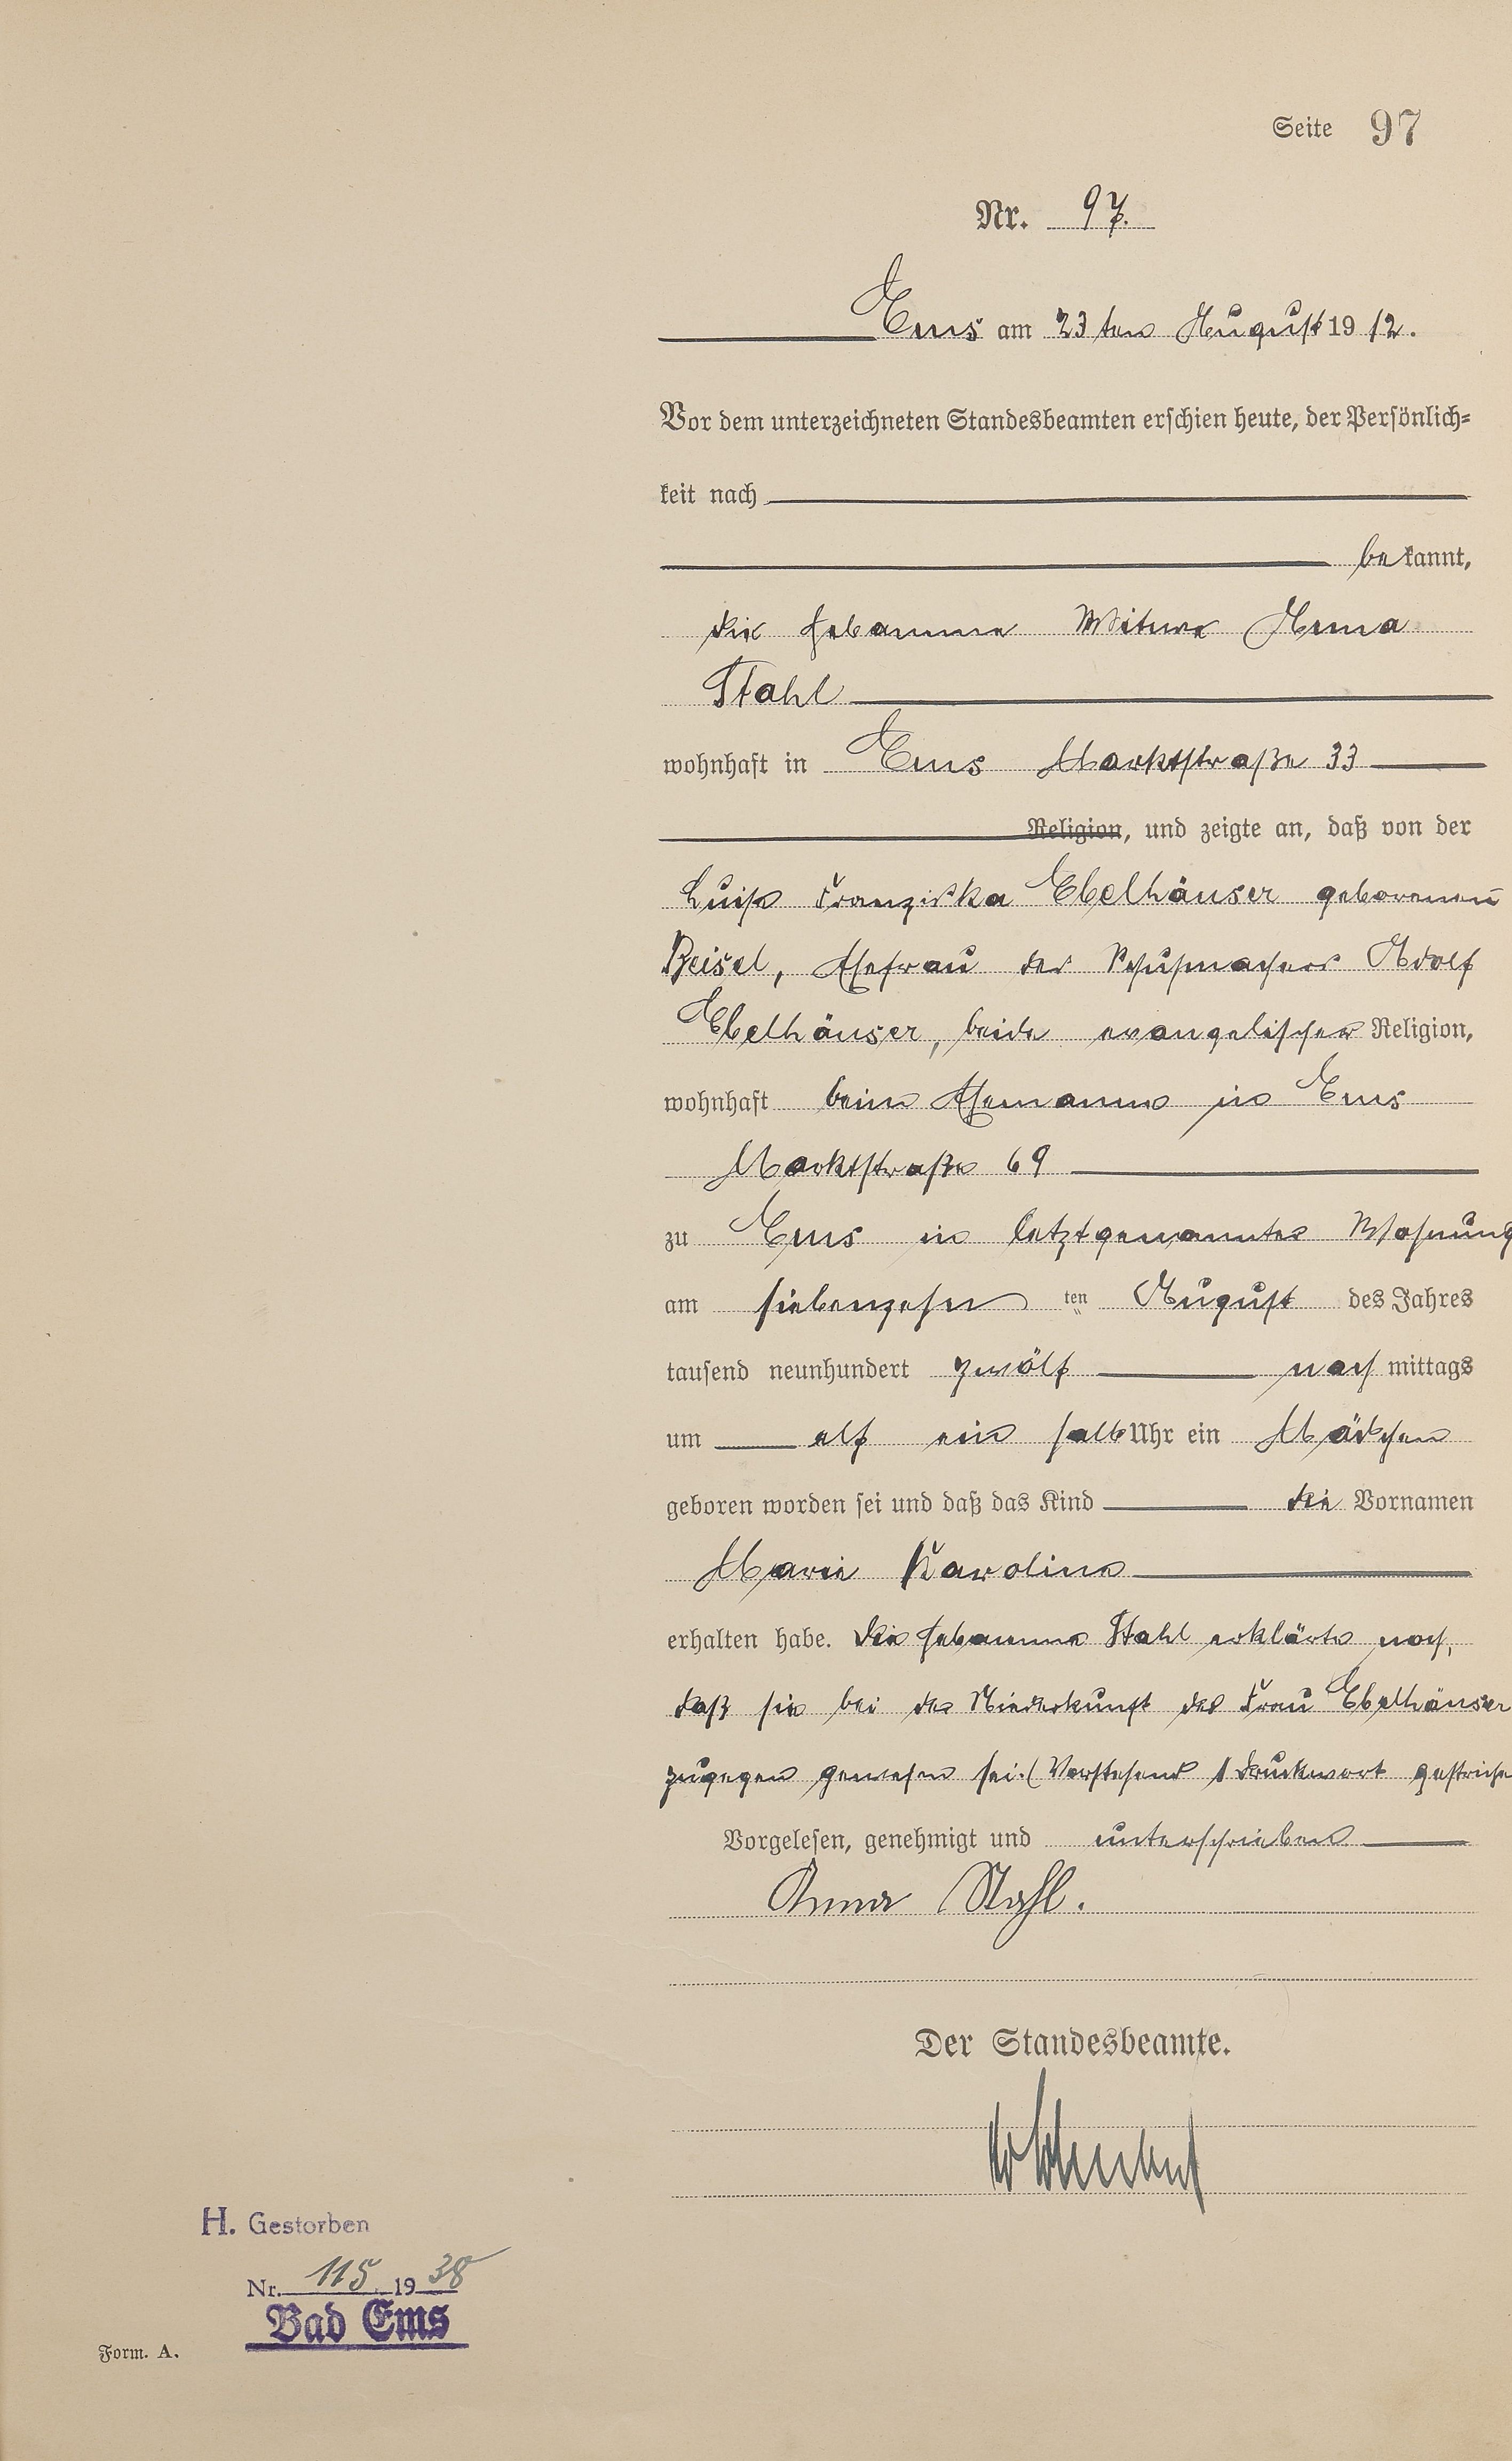 Seite 97
Nr. 97.
Ems am 23ten August 1912.
Vor dem unterzeichneten Standesbeamten erschien heute, der Persönlich-
keit nach
bekannt,
die Hebamme Witwe Anna
Stahl
wohnhaft in Ems Marktstraße 33
Religion, und zeigte an, daß von der
Luise Franziska Ebelhäuser geborenen
Beisel, Ehefrau des Schuhmachers Adolf
Ebelhäuser, beide evangelischer Religion,
wohnhaft beim Ehemanne in Ems
Marktstraße 69
zu Ems in letztgenannter Wohnung
am siebenzehn ten August des Jahres
tausend neunhundert zwölf nach mittags
um elf ein halb Uhr ein Mädchen
geboren worden sei und daß das Kind die Vornamen
Marie Karoline
erhalten habe. Die Hebamme Stahl erklärte noch,
daß sie bei der Niederkunft der Frau Ebelhäuser
zugegen gewesen sei. (Vorstehend 1 Druckwort gestriche
Vorgelesen, genehmigt und unterschrieben
Anna Stahl.
Der Standesbeamte.
H. Gestorben
Nr. 115 1938
Bad Ems
Form. A.